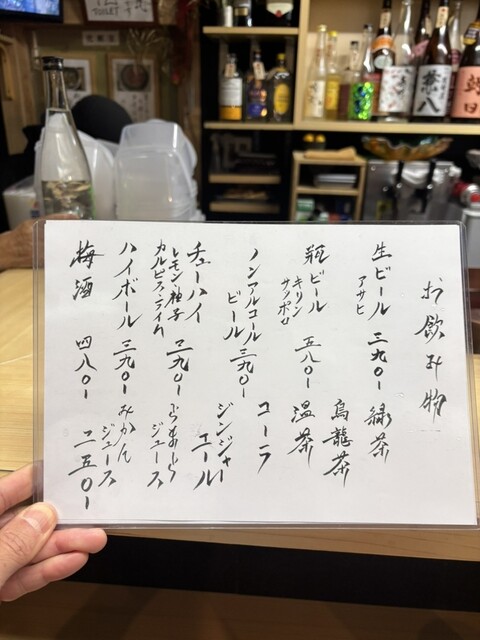 お飲み物
生ビール
アサヒ
三九〇ー
瓶ビール
キリン
サッポロ
五八〇ー
ノンアルコール
ビール
三九〇ー
チューハイ
レモン・柚子
カルピス・ライム
三九〇ー
ハイボール 三九〇ー
梅酒 四八〇ー
緑茶
烏龍茶
温茶
コーラ
ジンジャー
エール
ジュース
みかん
ジュース
二五〇ー
TOILET
兼八
朝日